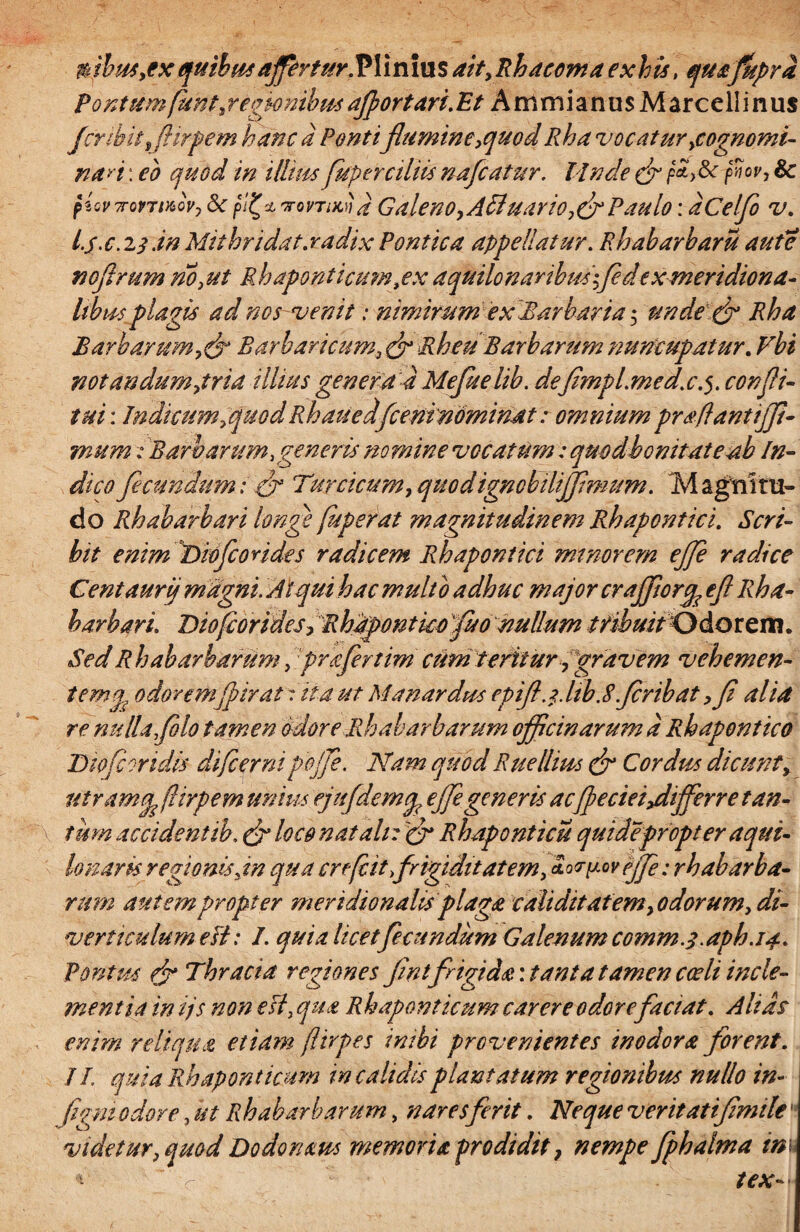 nibus, ex quibus affertur. Plinius ait, Rhacoma ex his, quæ supra
Pontum sunt, regionibus asportari. Et Ammianus Marcellinus
scribit, stirpem hanc à Ponti flumine, quod Rha vocatur, cognomi-
nari: eò quod in illius superciliis nascatur. Unde & ῥᾶ, & ῥῆον, &
ῥῆον ποντικὸν, & ῥίζα ποντικὴ à Galeno, Actuario, & Paulo: à Celso v.
l.5.c.23. in Mithridat. radix Pontica appellatur. Rhabarbarū autē
nostrum nō, ut Rhaponticum, ex aquilonaribus; sed ex meridiona-
libus plagis ad nos venit: nimirum ex Barbaria; unde & Rha
Barbarum, & Barbaricum, & Rheu Barbarum nuncupatur. Vbi
notandum, tria illius genera à Mesue lib. de simpl. med. c.5. consti-
tui: Indicum, quod Rhauedsceni nominat: omnium præstantissi-
mum: Barbarum, generis nomine vocatum: quod bonitate ab In-
dico secundum: & Turcicum, quod ignobilissimum. Magnitu-
do Rhabarbari longè superat magnitudinem Rhapontici. Scri-
bit enim Dioscorides radicem Rhapontici minorem esse radice
Centaurij magni. Atqui hac multò adhuc major crassiorq; est Rha-
barbari. Dioscorides, Rhapontico suo nullum tribuit Odorem.
Sed Rhabarbarum, præsertim cùm teritur, gravem vehemen-
temq; odorem spirat: ita ut Manardus epist.3.lib.8. scribat, si aliâ
re nulla, solo tamen odore Rhabarbarum officinarum à Rhapontico
Dioscoridis discerni posse. Nam quod Ruellius & Cordus dicunt,
utramq; stirpem unius ejusdemq; esse generis ac speciei, differre tan-
tùm accidentib. & loco natali: & Rhaponticū quidē propter aqui-
lonaris regionis, in qua crescit, frigiditatem, ἄοσμον esse: rhabarba-
rum autem propter meridionalis plagæ caliditatem, odorum, di-
verticulum est: I. quia licet secundùm Galenum comm.3.aph.14.
Pontus & Thracia regiones sint frigidæ: tanta tamen cœli incle-
mentia in ijs non est, quæ Rhaponticum carere odore faciat. Aliàs
enim reliquæ etiam stirpes inibi provenientes inodoræ forent.
II. quia Rhaponticum in calidis plantatum regionibus nullo in-
signi odore, ut Rhabarbarum, nares ferit. Neque veritati simile
videtur, quod Dodonæus memoriæ prodidit, nempe sphalma in
tex-